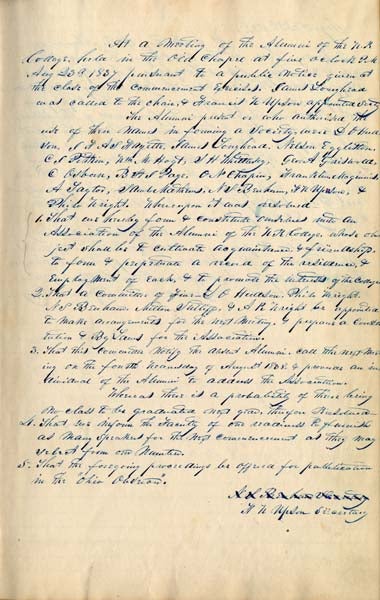 At a Meeting of the Alumni of the W.R.
College, held in the Old Chapel at five o clock P.M.
Aug 23d 1837 pursuant to a public notice given at
the close of the commencement Exercises. James Loughead
was called to the chair, & Francis W Upson appointed Secty
The Alumni present or who authorized the
use of their names in forming a Society, were D Hud
son, James Loughead, Nelson Eggleston,
C Pitkin, Wm W Hoyt, Geo A Griswold,
C Osborn, Page, O N Chapin, Franklin Maginnis
A Saxton, Saml Mathews, A S Benham, F W Upson, &
Philo Wright. Whereupon it was resolved
1. That we hereby form & constitute ourselves into an
Association of the Alumni of the W.R. College, whose ob-
ject shall be to cultivate acquaintance & friendship,
to form & perpetuate a record of the residence, &
Employment of each, & to promote the interests of the College
2. That a Committee of five D Hudson, Philo Wright,
A S Benham, Milton Sutliff, & A K Wright be appointed
to make arrangements for the next Meeting, & prepare a Consti-
tution & By Laws for the Association.
3. That this Committee Notify the absent Alumni, call the next Meet
ing on the fourth Wednesday of August 1838, & provide an in-
dividual of the Alumni to address the Association.
Whereas there is a probability of there being
no class to be graduated next year, therefore Resolved
4. That we inform the Faculty of our readiness to furnish
as many Speakers for the next commencement as they may
select from our Number.
5. That the foregoing proceedings be offered for publication
in the Ohio Observer.
F W Upson Secretary